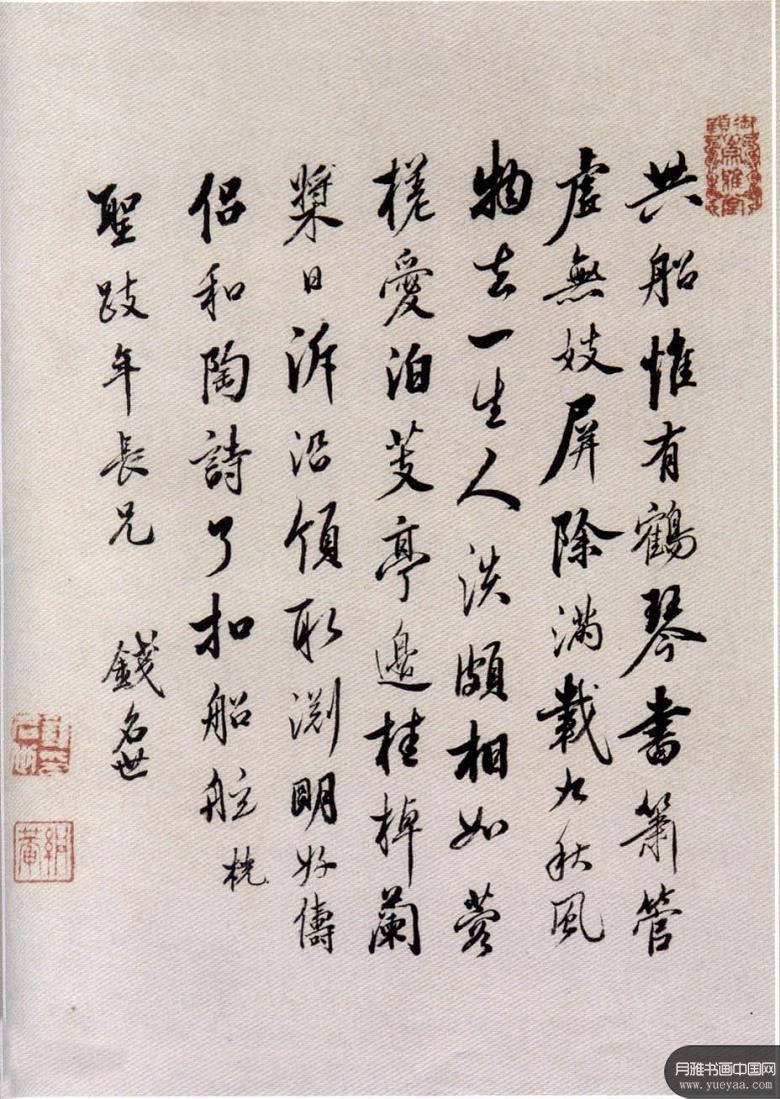 共船惟有鶴琴書簫管
虛無妓屏除滿載九秋風
物去一生人淡頗相如蓉
槎愛泊芰亭邊桂棹蘭
槳日泝沿領取淵明好儔
侶和陶詩了扣船舷
桄
聖跂年長兄
錢名世
月雅书画中国网
www.yueyaa.com